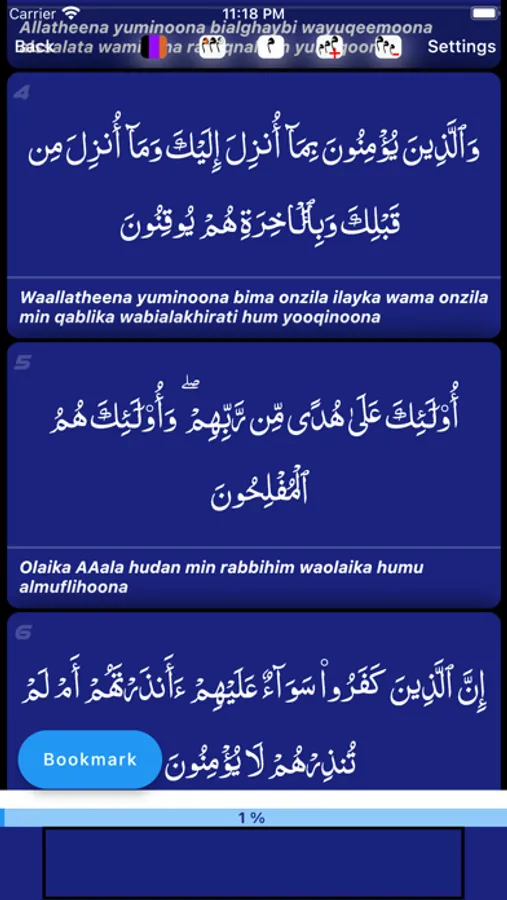 Carrier 11:18 PM
Allatheena yuminoona bialghaybi wayuqeemoona
Back Settings
4
وَٱلَّذِينَ يُؤْمِنُونَ بِمَآ أُنزِلَ إِلَيْكَ وَمَآ أُنزِلَ مِن
قَبْلِكَ وَبِٱلْـَٔاخِرَةِ هُمْ يُوقِنُونَ
Waallatheena yuminoona bima onzila ilayka wama onzila
min qablika wabialakhirati hum yooqinoona
5
أُو۟لَـٰٓئِكَ عَلَىٰ هُدًى مِّن رَّبِّهِمْ ۖ وَأُو۟لَـٰٓئِكَ هُمُ
ٱلْمُفْلِحُونَ
Olaika AAala hudan min rabbihim waolaika humu
almuflihoona
6
إِنَّ ٱلَّذِينَ كَفَرُوا۟ سَوَآءٌ عَلَيْهِمْ ءَأَنذَرْتَهُمْ أَمْ لَمْ
تُنذِرْهُمْ لَا يُؤْمِنُونَ
Bookmark
1 %